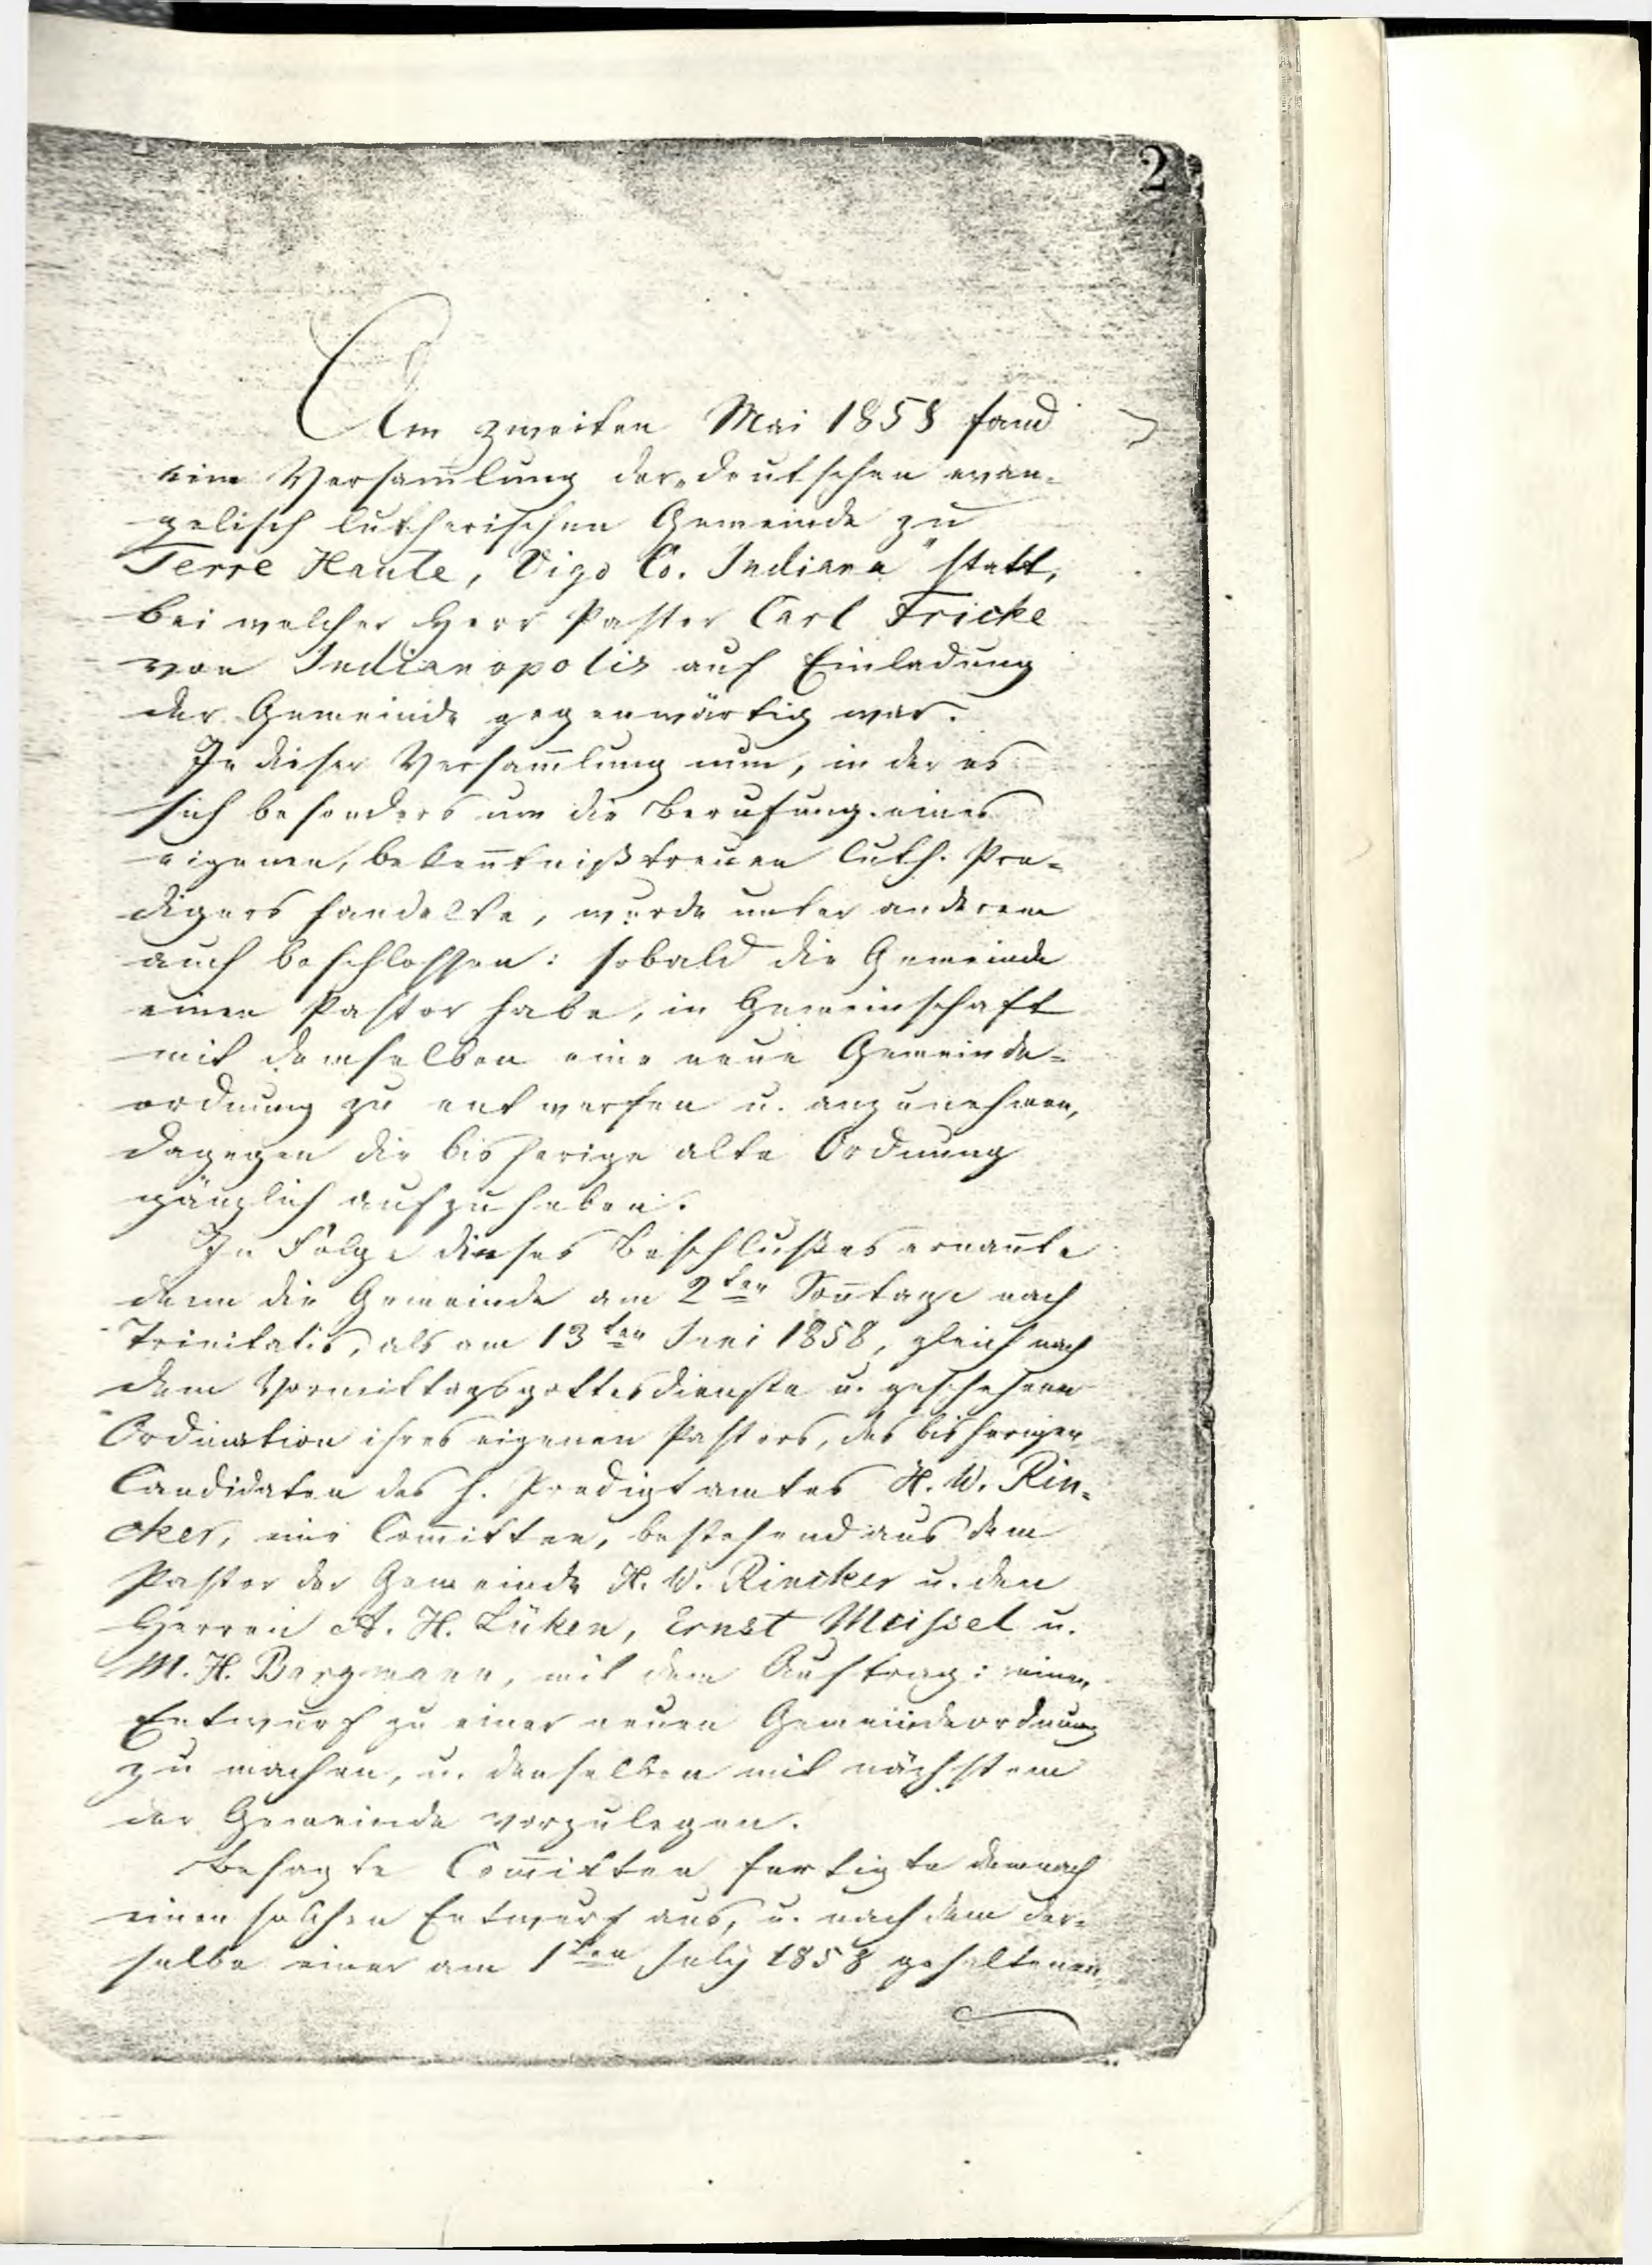 2
Am zweiten Mai 1858 fand
eine Versam̄lung der „deutschen evan-
gelisch lutherischen Gemeinde zu
Terre Haute, Vigo Co. Indiana" statt,
bei welcher Herr Pastor Carl Fricke
von Indianopolis auf Einladung
der Gemeinde gegenwärtig war.
In dieser Versam̄lung nun, in der es
sich besonders um die Berufung eines
eigenen, beken̄tnißtreuen luth. Pre-
digers handelte, wurde unter anderem
auch beschlossen: sobald die Gemeinde
einen Pastor habe, in Gemeinschaft
mit demselben eine neue Gemeinde-
ordnung zu entwerfen u. anzunehmen,
dagegen die bisherige alte Ordnung
gänzlich aufzuheben.
In Folge dieses Beschlußes ernan̄te
denn die Gemeinde am 2ten Son̄tage nach
Trinitatis, als am 13ten Juni 1858, gleich nach
dem Vormittagsgottesdienste u. geschehener
Ordination ihres eigenen Pastors, des bisherigen
Candidaten des h. Predigtamtes H. W. Rin-
cker, eine Com̄ittee, bestehend aus dem
Pastor der Gemeinde H. W. Rincker u. den
Herren A. H. Lüken, Ernst Meissel u.
M. H. Bergmann, mit dem Auftrag: einen
Entwurf zu einer neuen Gemeindeordnung
zu machen, u. denselben mit nächstem
der Gemeinde vorzulegen.
Besagte Com̄ittee fertigte demnach
einen solchen Entwurf aus, u. nachdem der-
selbe einer am 1ten July 1858 gehaltenen